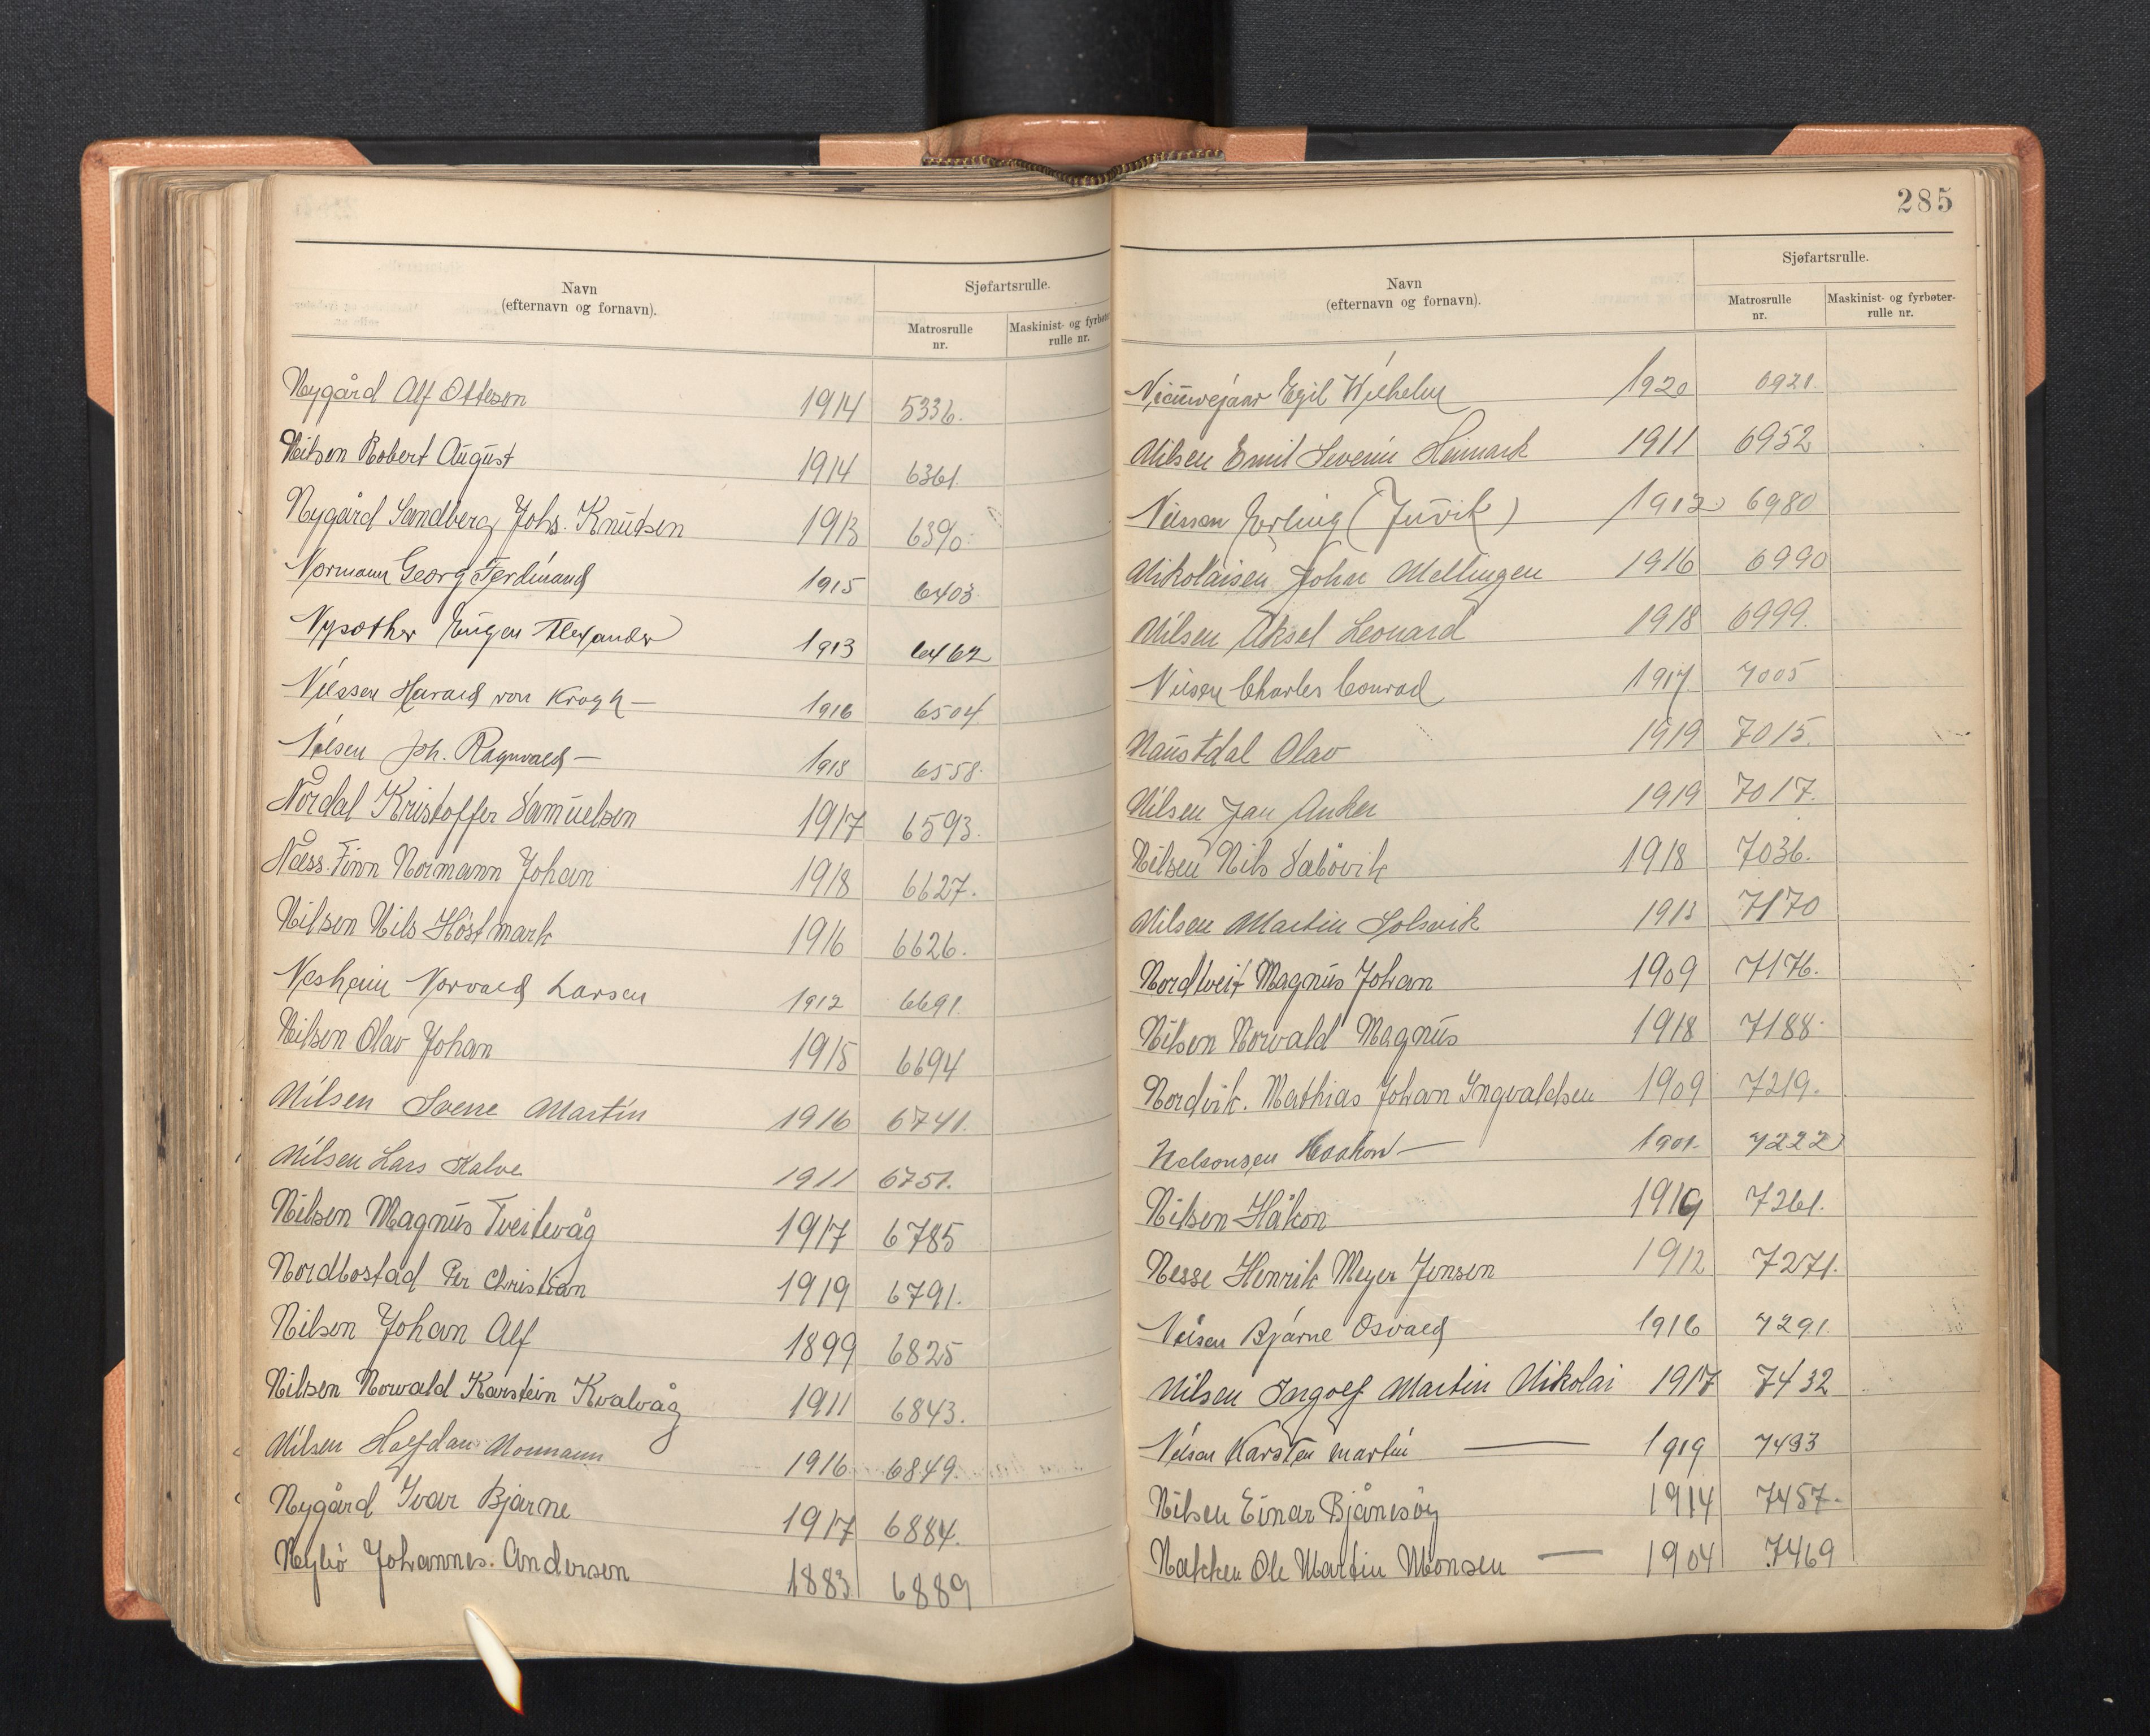 Navn
(efternavn og fornavn).
Sjøfartsrulle.
Matrosrulle
nr.
Maskinist- og fyrbøter-
rulle nr.
Nygård Alf Otteson 1914 5336.
Nilsen Robert August 1914 6361.
Nygård Sandberg Johs. Knutsen 1913 6390.
Normann Georg Ferdinand 1915 6403
Nypother Eugen Alexander 1913 6462
Nilssen Harald von Krogh — 1916 6504
Nilsen Joh. Ragnvald — 1918 6558.
Nordal Kristoffer Samuelsen 1917 6593.
Næss. Finn Normann Johan 1918 6627.
Nilsen Nils Höstmark 1916 6626.
Nesheim Norvald Larsen 1912 6691.
Nilsen Olav Johan 1915 6694
Nilsen Sverre Martin 1916 6741.
Nilsen Lars Kalve 1911 6751.
Nilsen Magnus Tveitevåg 1917 6785
Nordbostad Per Christian 1919 6791.
Nilsen Johan Alf 1899 6825
Nilsen Norvald Karstein Kvalvåg 1911 6843.
Nilsen Halfdan Normann 1916 6849.
Nygård Ivar Bjarne 1917 6884.
Nybö Johannes. Andersen 1883 6889
285
Navn
(efternavn og fornavn).
Sjøfartsrulle.
Matrosrulle
nr.
Maskinist- og fyrbøter-
rulle nr.
Nieuwejaar Egil Wilhelm 1920 6921.
Nilsen Emil Severin Heimark 1911 6952
Nilsson Erling (Juvik) 1912 6980
Nikolaisen John Mellingen 1916 6990
Nilsen Aksel Leonard 1918 6999.
Nilsen Charles Conrad 1917 7005
Naustdal Olav 1919 7015.
Nilsen Jan Anker 1919 7017.
Nilsen Nils Sæbövik 1918 7036.
Nilsen Martin Solsvik 1913 7170
Nordtveit Magnus Johan 1909 7176.
Nilsen Norvald Magnus 1918 7188.
Nordvik. Mathias Johan Ingvaldsen 1909 7219.
Nelsonsen Haakon — 1901. 7222
Nilsen Håkon 1919 7261.
Nesse Henrik Meyer Jensen 1912 7271.
Nilsen Bjarne Osvald 1916 7291.
Nilsen Ingolf Martin Nikolai 1917 7432
Nilsen Karsten Martin — 1919 7433
Nilsen Einar Bjånesöy 1914 7457.
Natken Ole Martin Monsen — 1904 7469